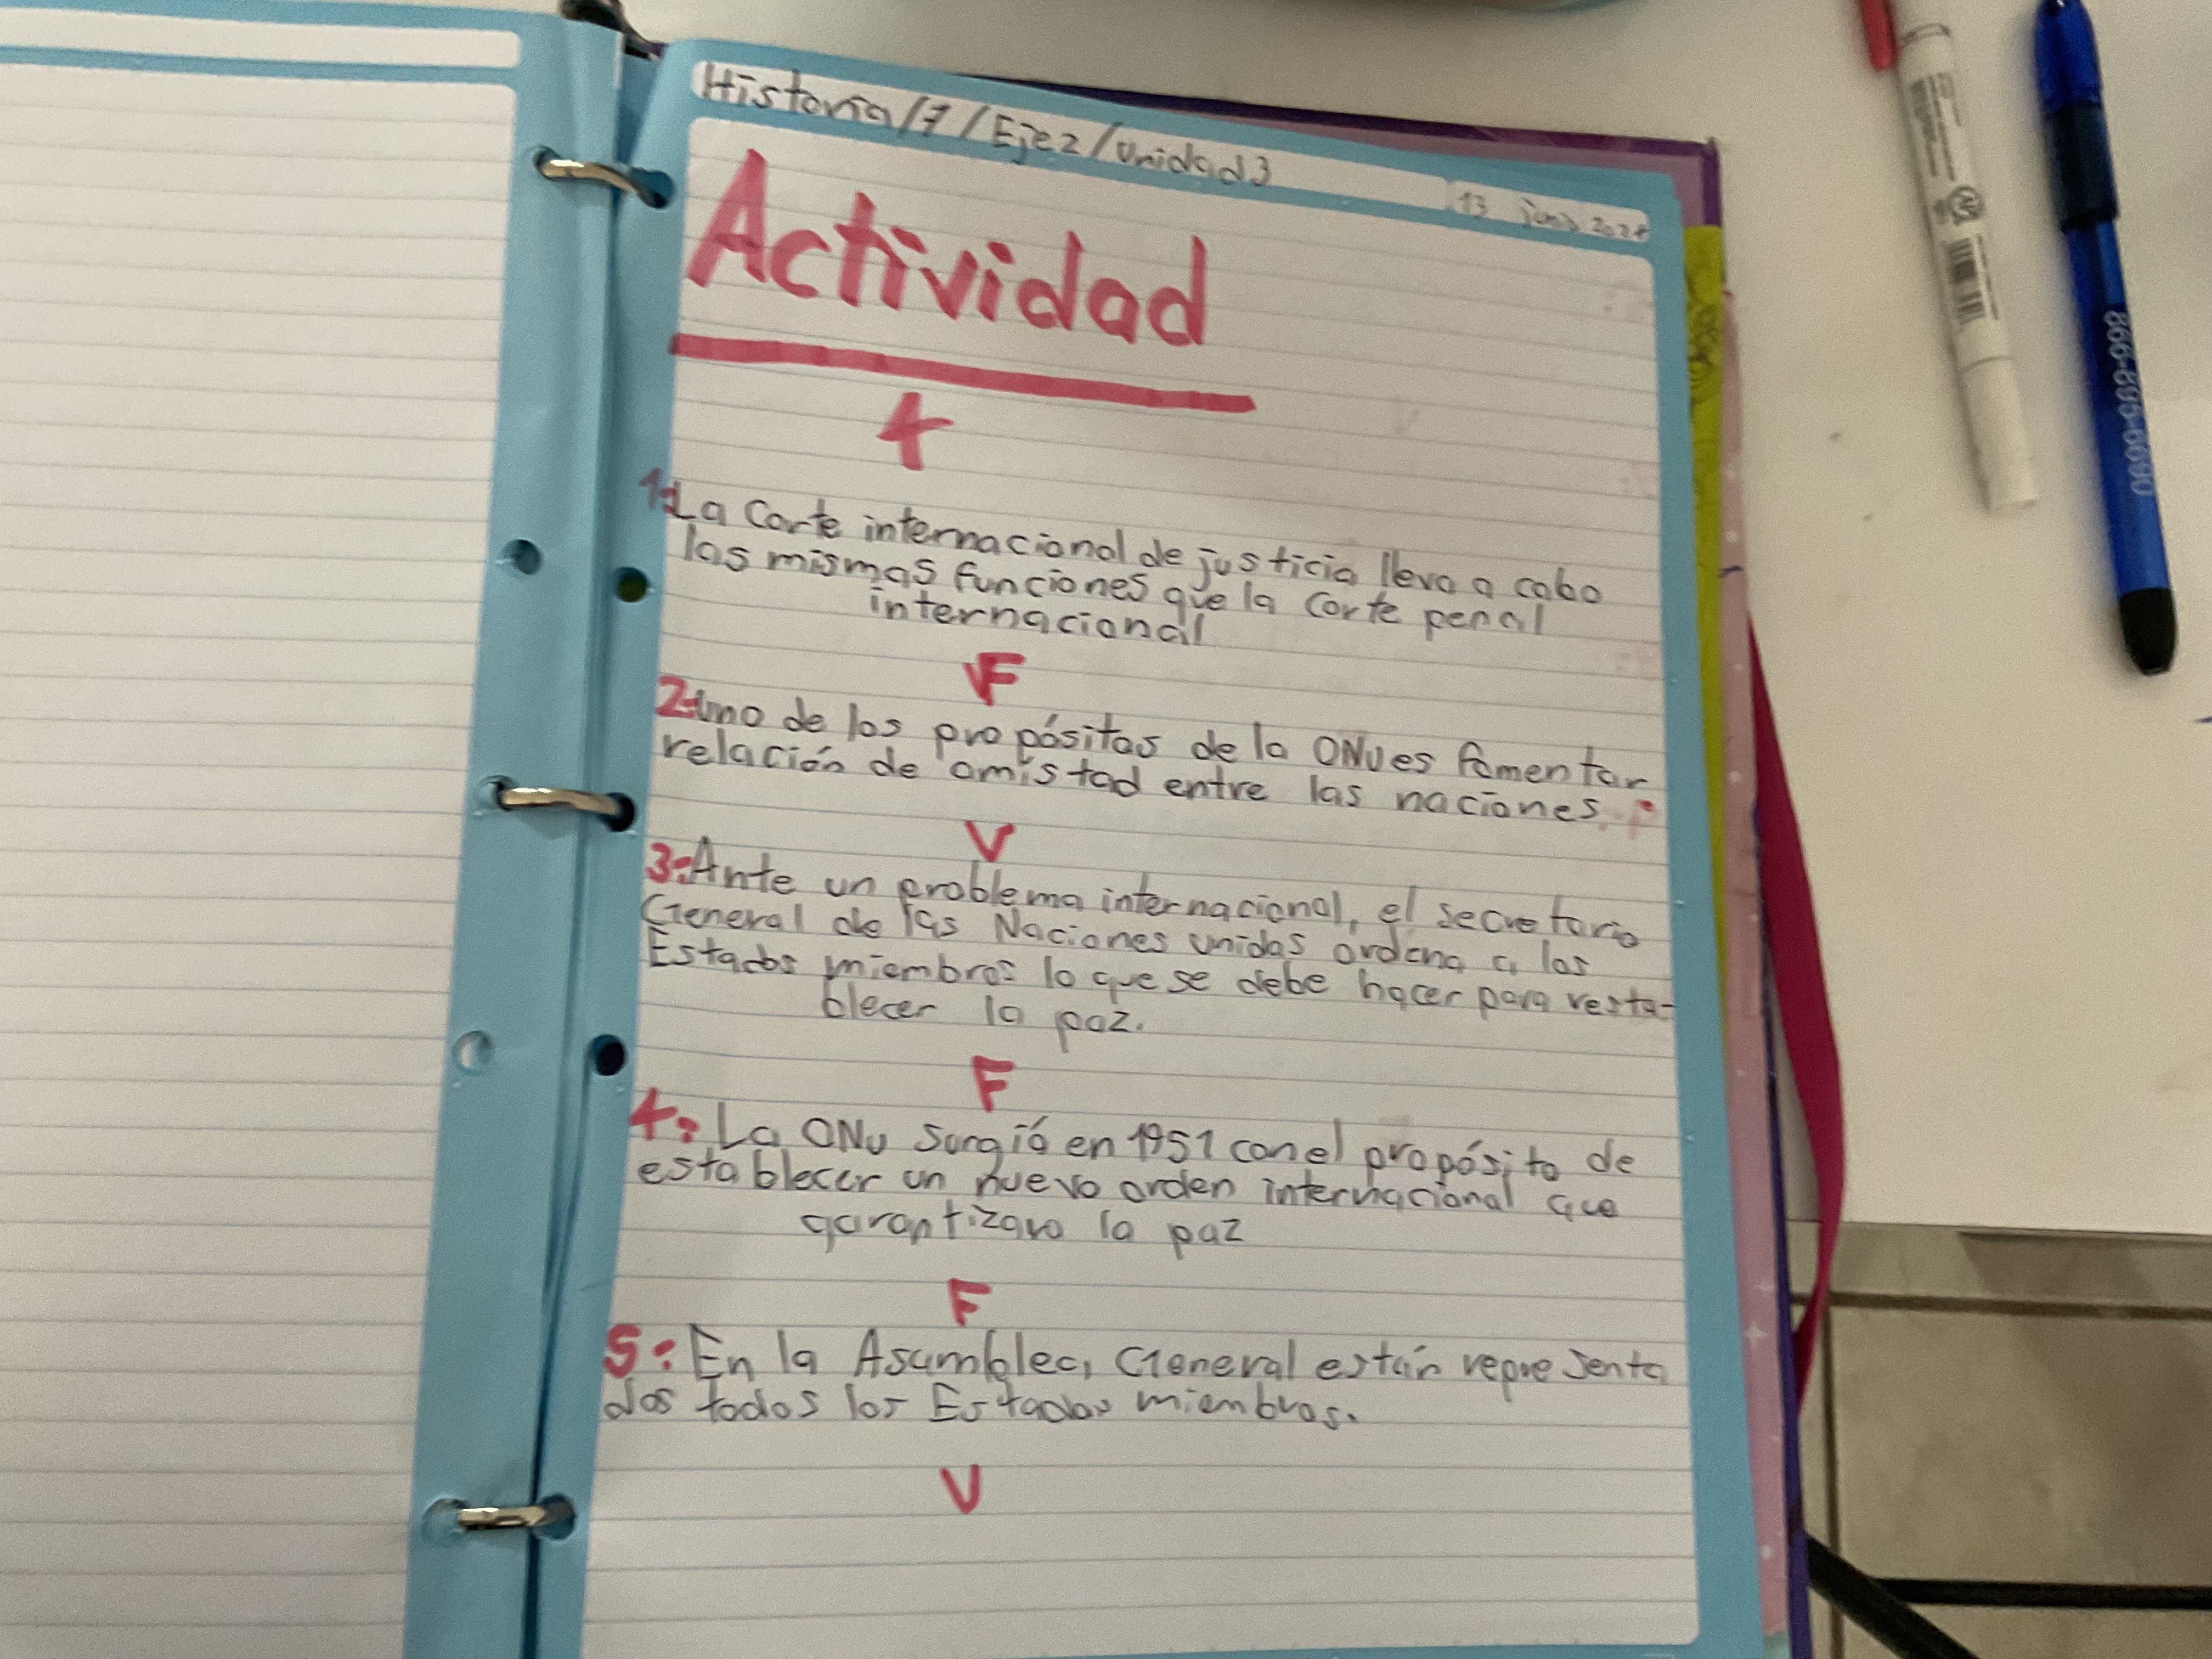 Historia/7/Eje2/unidad3
13 junio 2024
Actividad
4
1:La Corte internacional de justicia lleva a cabo
las mismas funciones que la Corte penal
internacional
F
2:uno de los propósitos de la ONU es fomentar
relación de amistad entre las naciones.
V
3:Ante un problema internacional, el secretario
General de las Naciones unidas ordena a los
Estados miembros lo que se debe hacer para resta-
blecer la paz.
F
4: La ONU Surgió en 1951 con el propósito de
establecer un nuevo orden internacional que
garantizara la paz
F
5: En la Asamblea, General están representa
dos todos los Estados miembros.
V
866-895-6690